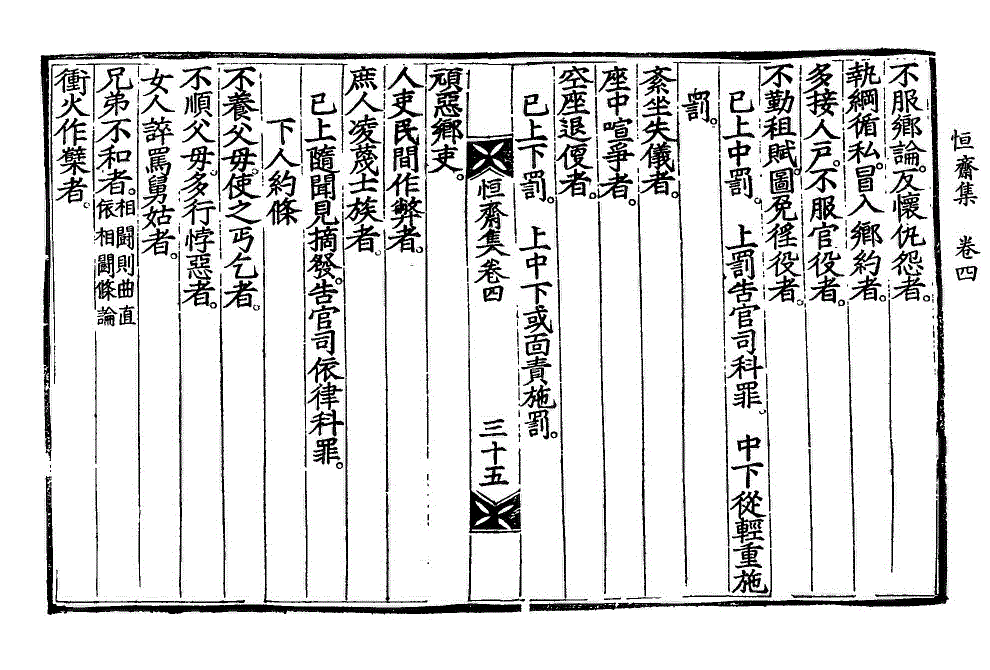 恒齋集 卷四
不服鄉論。反懷仇怨者。
執綱循私。冒入鄉約者。
多接人戶。不服官役者。
不勤租賦。圖免徭役者。
已上中罰。 上罰告官司科罪。 中下從輕重施
罰。
紊坐失儀者。
座中喧爭者。
空座退便者。
已上下罰。 上中下或面責施罰。
恒齋集卷四 三十五
頑惡鄉吏。
人吏民間作弊者。
庶人凌蔑士族者。
已上隨聞見摘發。告官司依律科罪。
下人約條
不養父母。使之丐乞者。
不順父母。多行悖惡者。
女人誶罵舅姑者。
兄弟不和者。相鬪則曲直依相鬪條論
衝火作孽者。